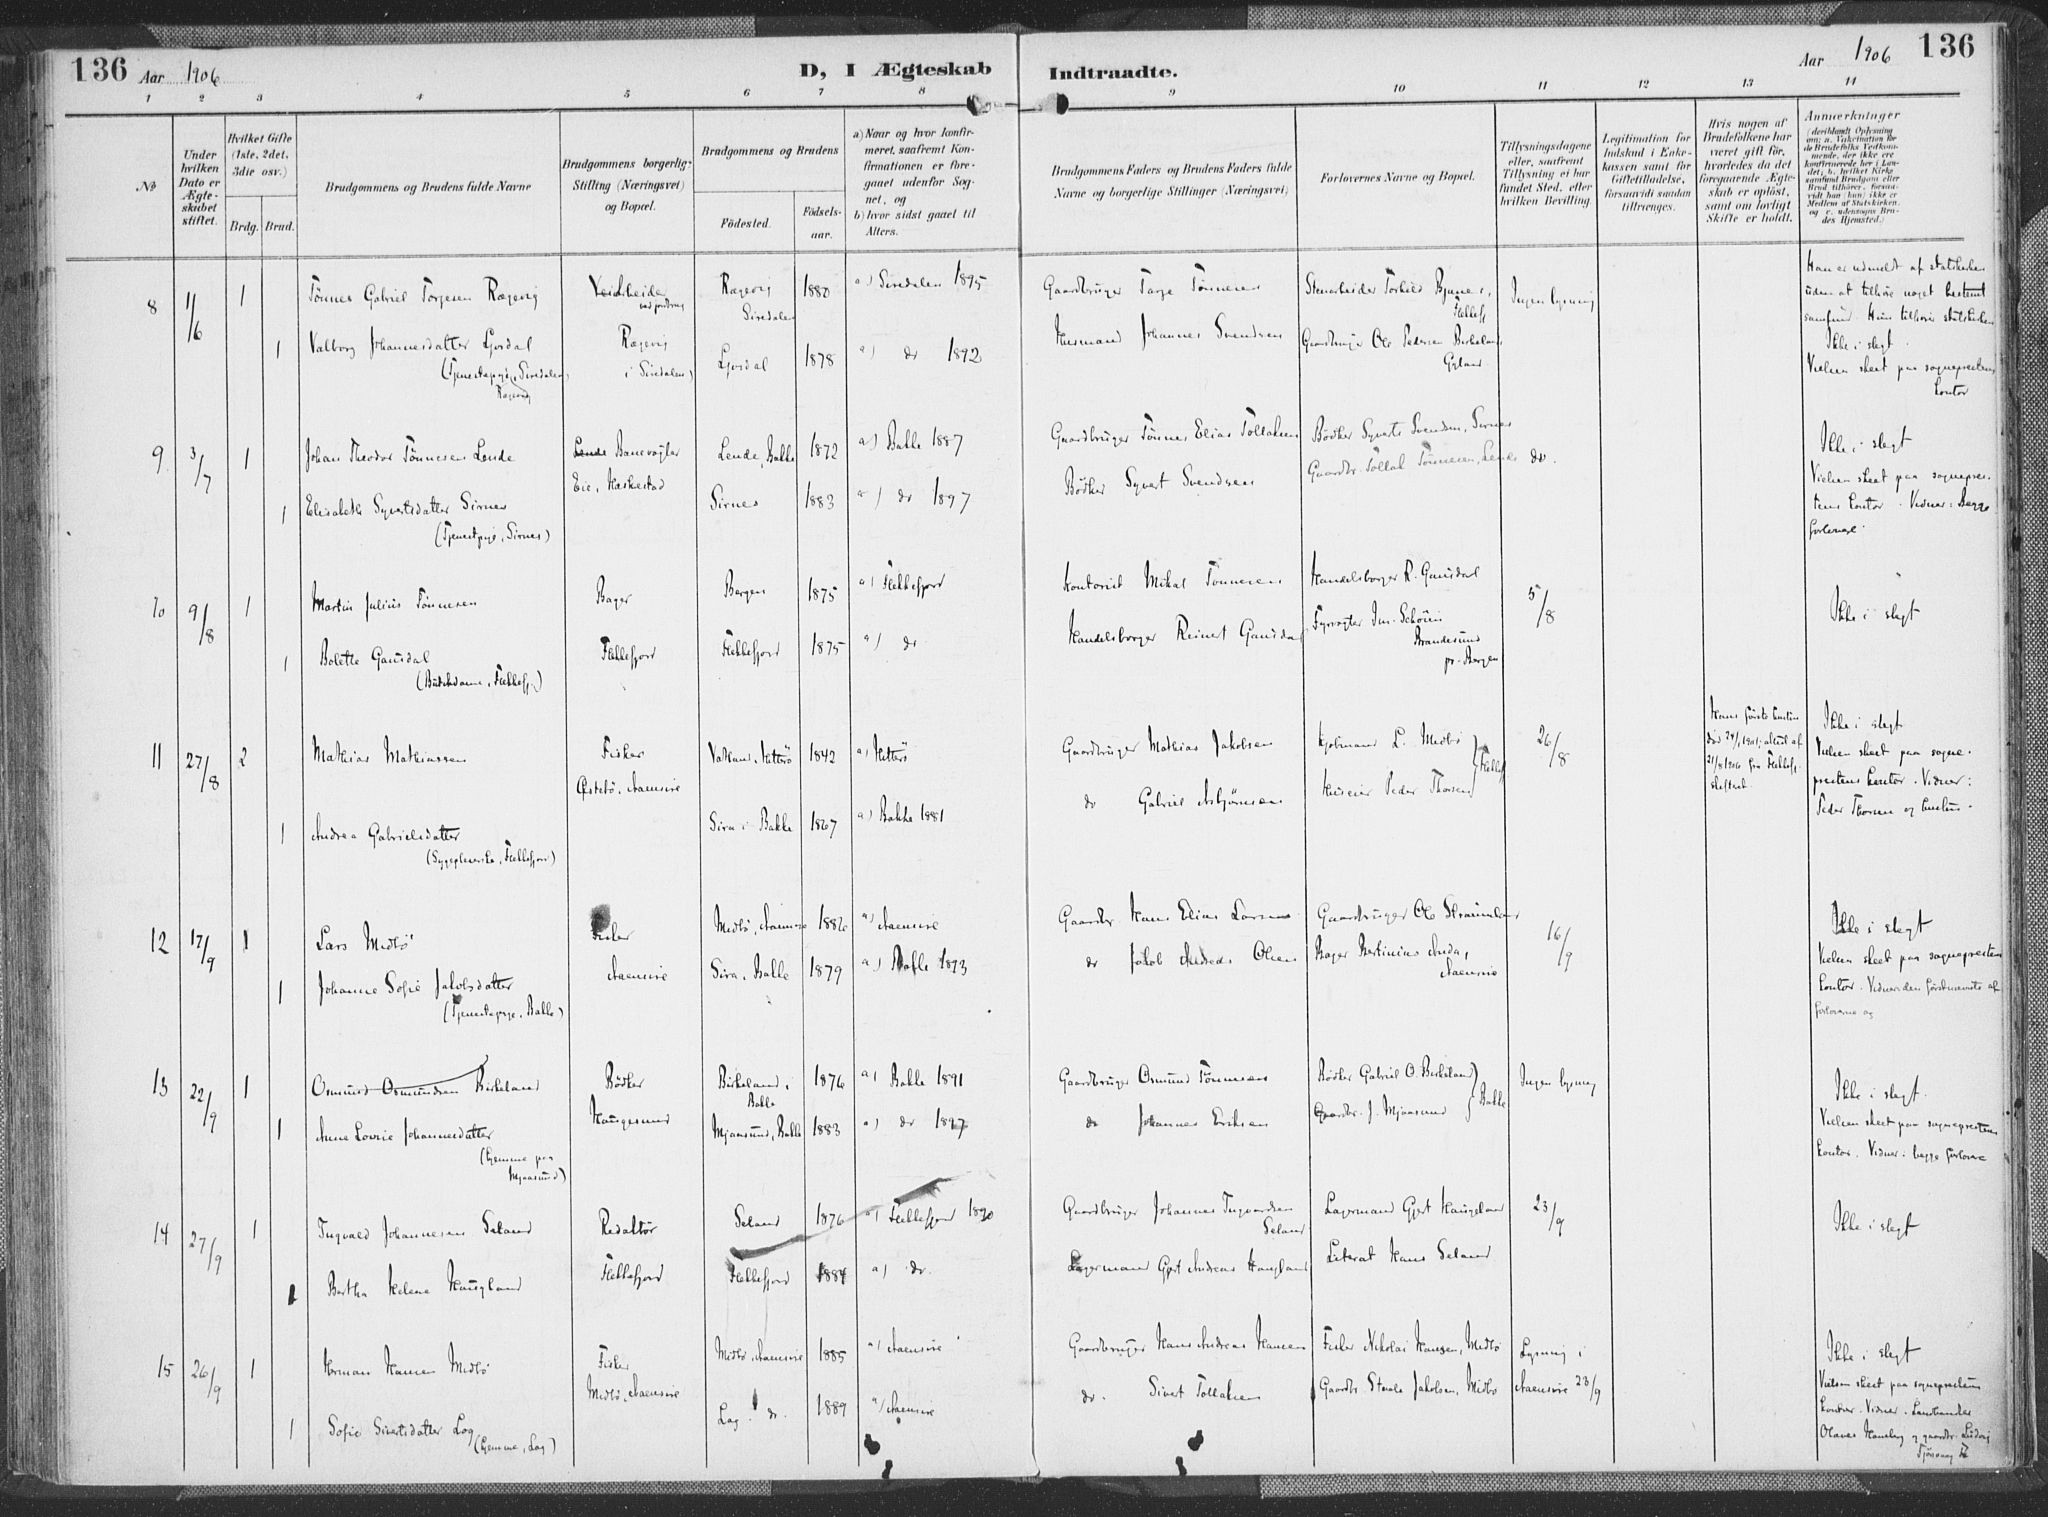 136 Aar 1906
D, I Ægteskab Indtraadte.
Aar 1906 136
1 2 3 4 5 6 7 8 9 10 11 12 13 14
No
Under hvilken Dato er Ægteskabet stiftet.
Hvilket Gifte (1ste, 2det, 3die osv.)
Brdg. Brud.
Brudgommens og Brudens fulde Navne
Brudgommens borgerlige Stilling (Næringsvei) og Bopæl.
Brudgommens og Brudens
Fødested. Fødselsaar.
a) Naar og hvor konfirmeret, saafremt Konfirmationen er foregaaet udenfor Sognet, og
b) hvor sidst gaaet til Alters.
Brudgommens Faders og Brudens Faders fulde Navne og borgerlige Stillinger (Næringsvei)
Forlovernes Navne og Bopæl.
Tillysningsdagene eller, saafremt Tillysning ei har fundet Sted, efter hvilken Bevilling.
Legitimation for Indskud i Enkekassen samt for Giftetilladelse, forsaavidt saadan tiltrænges.
Hvis nogen af Brudefolkene har været gift før, hvorledes da det foregaaende Ægteskab er opløst, samt om lovligt Skifte er holdt.
Anmærkninger
(deriblandt Oplysning om: a. Vakcination for de Brudefolks Vedkommende, der ikke ere konfirmerede her i Landet; b. hvilket Kirkesamfund Brudgom eller Brud tilhører, forsaavidt han (hun) ikke er Medlem af Statskirken, og c. udensogns Brudes Hjemsted.)
8 11/6 1 Tönnes Gabriel Torgesen Rægevig
Rægevig Siredalen 1880 a) Siredalen 1895
Gaardbruger Targe Tönnesen
Ingen lysning
Han er udmeldt af statskirken
uden at tilhöre noget bestemt
samfund. Hun tilhörer statskirken
1 Valborg Johannesdatter Ljosdal
Rægevig i Siredalen Ljosdal 1878 a) do 1892
Husmand Johannes Svendsen
Gaardbruger Ole Pedersen Birkeland Gyland
Ikke i slegt.
Vielsen skeet paa sogneprestens
kontor
9 3/7 1 Johan Theodor Tönnesen Lende
Lende Banevogter
Eie, Heskestad
Lende, Bakke 1872 a) Bakke 1887
Gaardbruger Tönnes Elias Tollaksen
Bödker Syverts Svendsen, Sirnes
Gaardbr. Tollak Tönnesen, Lende
do.
Ikke i slegt
Vielsen skeet paa sogneprestens
kontor. Vidner: Begge
forlovere.
1 Elisabeth Syvertsdatter Sirnes
(Tjenestpige, Sirnes)
Sirnes 1883 a) do 1897
Bödker Syvert Svendsen
10 9/8 1 Martin Julius Tönnesen
Bager Bergen 1875 a) Flekkefjord
Kontorist Mikal Tönnesen
Handelsborger R. Gausdal
5/8
Ikke i slegt
1 Bolette Gausdal
(Butikdame, Flekkefj.)
Flekkefjord Flekkefjord 1875 a) do
Handelsborger Reinert Gausdal
Fyrvogter
Brandesund
pr. Bergen
11 27/8 2 Mathias Mathiassen
Fisker
Aaensire
Hitterö 1842 a) Hitterö
Gaardbruger Mathias Jakobsen
Kjöbmand L. Midbö
Peder Thorsen
Flekkefj.
26/8
Hans første hustru
död 24/1 1901; attest af
21/8 1906 fra Flekkefj.
skifteret.
Ikke i slegt
Vielsen skeet paa sogneprestens
kontor. Vidner:
Peder Thorsen og hustru.
1 Andrea Gabrielsdatter
(Sygepleierske, Flekkefjord)
Sira i Bakke 1867 a) Bakke 1881
do Gabriel Asbjörnsen
12 17/9 1 Lars Midbö
Fisker
Aaensire
Midbö, Aaensire 1882 a) Aaensire
Gaardbr. Hans Elias Larsen
Gaardbruger Ole
16/9
Ikke i slegt
Vielsen skeet paa sogneprestens
kontor. Vidner: den førstnævnte af
forloverne og
1 Johanne Sofie Jakobsdatter
(Tjenestepige, Bakke)
Sira, Bakke 1879 a) Bakke 1893
do Jakob Andreas Olsen
Bager
Aaensire
13 22/9 1 Osmund Osmundsen Birkeland
Bödker
Haugesund
Birkeland, Bakke 1876 a) Bakke 1891
Gaardbruger Osmund Tönnesen
Bödker Gabriel O. Birkeland
Gaardbr. J. Mjaasund
Bakke
Ingen lysning
Ikke i slegt.
Vielsen skeet paa sogneprestens
kontor. Vidner: begge forlovere
1 Anne Lovise Johannesdatter
(Hjemme paa
Mjaasund)
Mjaasund, Bakke 1883 a) do 1897
do Johannes Eriksen
14 27/9 1 Ingvald Johannesen Seland
Redaktör
Flekkefjord
Seland 1876 a) Flekkefjord 1890
Gaardbruger Johannes Ingvardsen
Seland
Lagermand Gjert Haugland
23/9
Ikke i slegt
1 Bertha Helene Haugland
Flekkefjord 1884 a) do.
Lagermand Gjert Andreas Haugland
Literat Hans Seland
15 26/9 1 Herman Hansen Midbö
Fisker
Midbö, Aaensire
Midbö, Aaensire 1885 a) Aaensire
Gaardbruger Hans Andreas Hansen
Fisker Nikolai Hansen, Midbö
Lysning i
Aaensire 23/9
Ikke i slegt
Vielsen skeet paa sogneprestens
kontor. Vidner:
1 Sofie Sivertsdatter Log
(Hjemme, Log)
Log. do. 1889 a) Aaensire
do. Sivert Tollaksen
Gaardbr. Jakobsen, Midbö